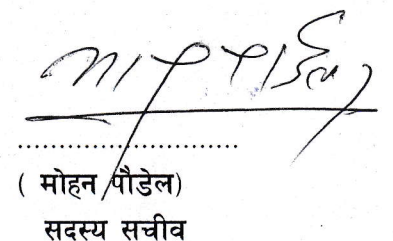 ........................
( मोहन पौडेल)
सदस्य सचीव